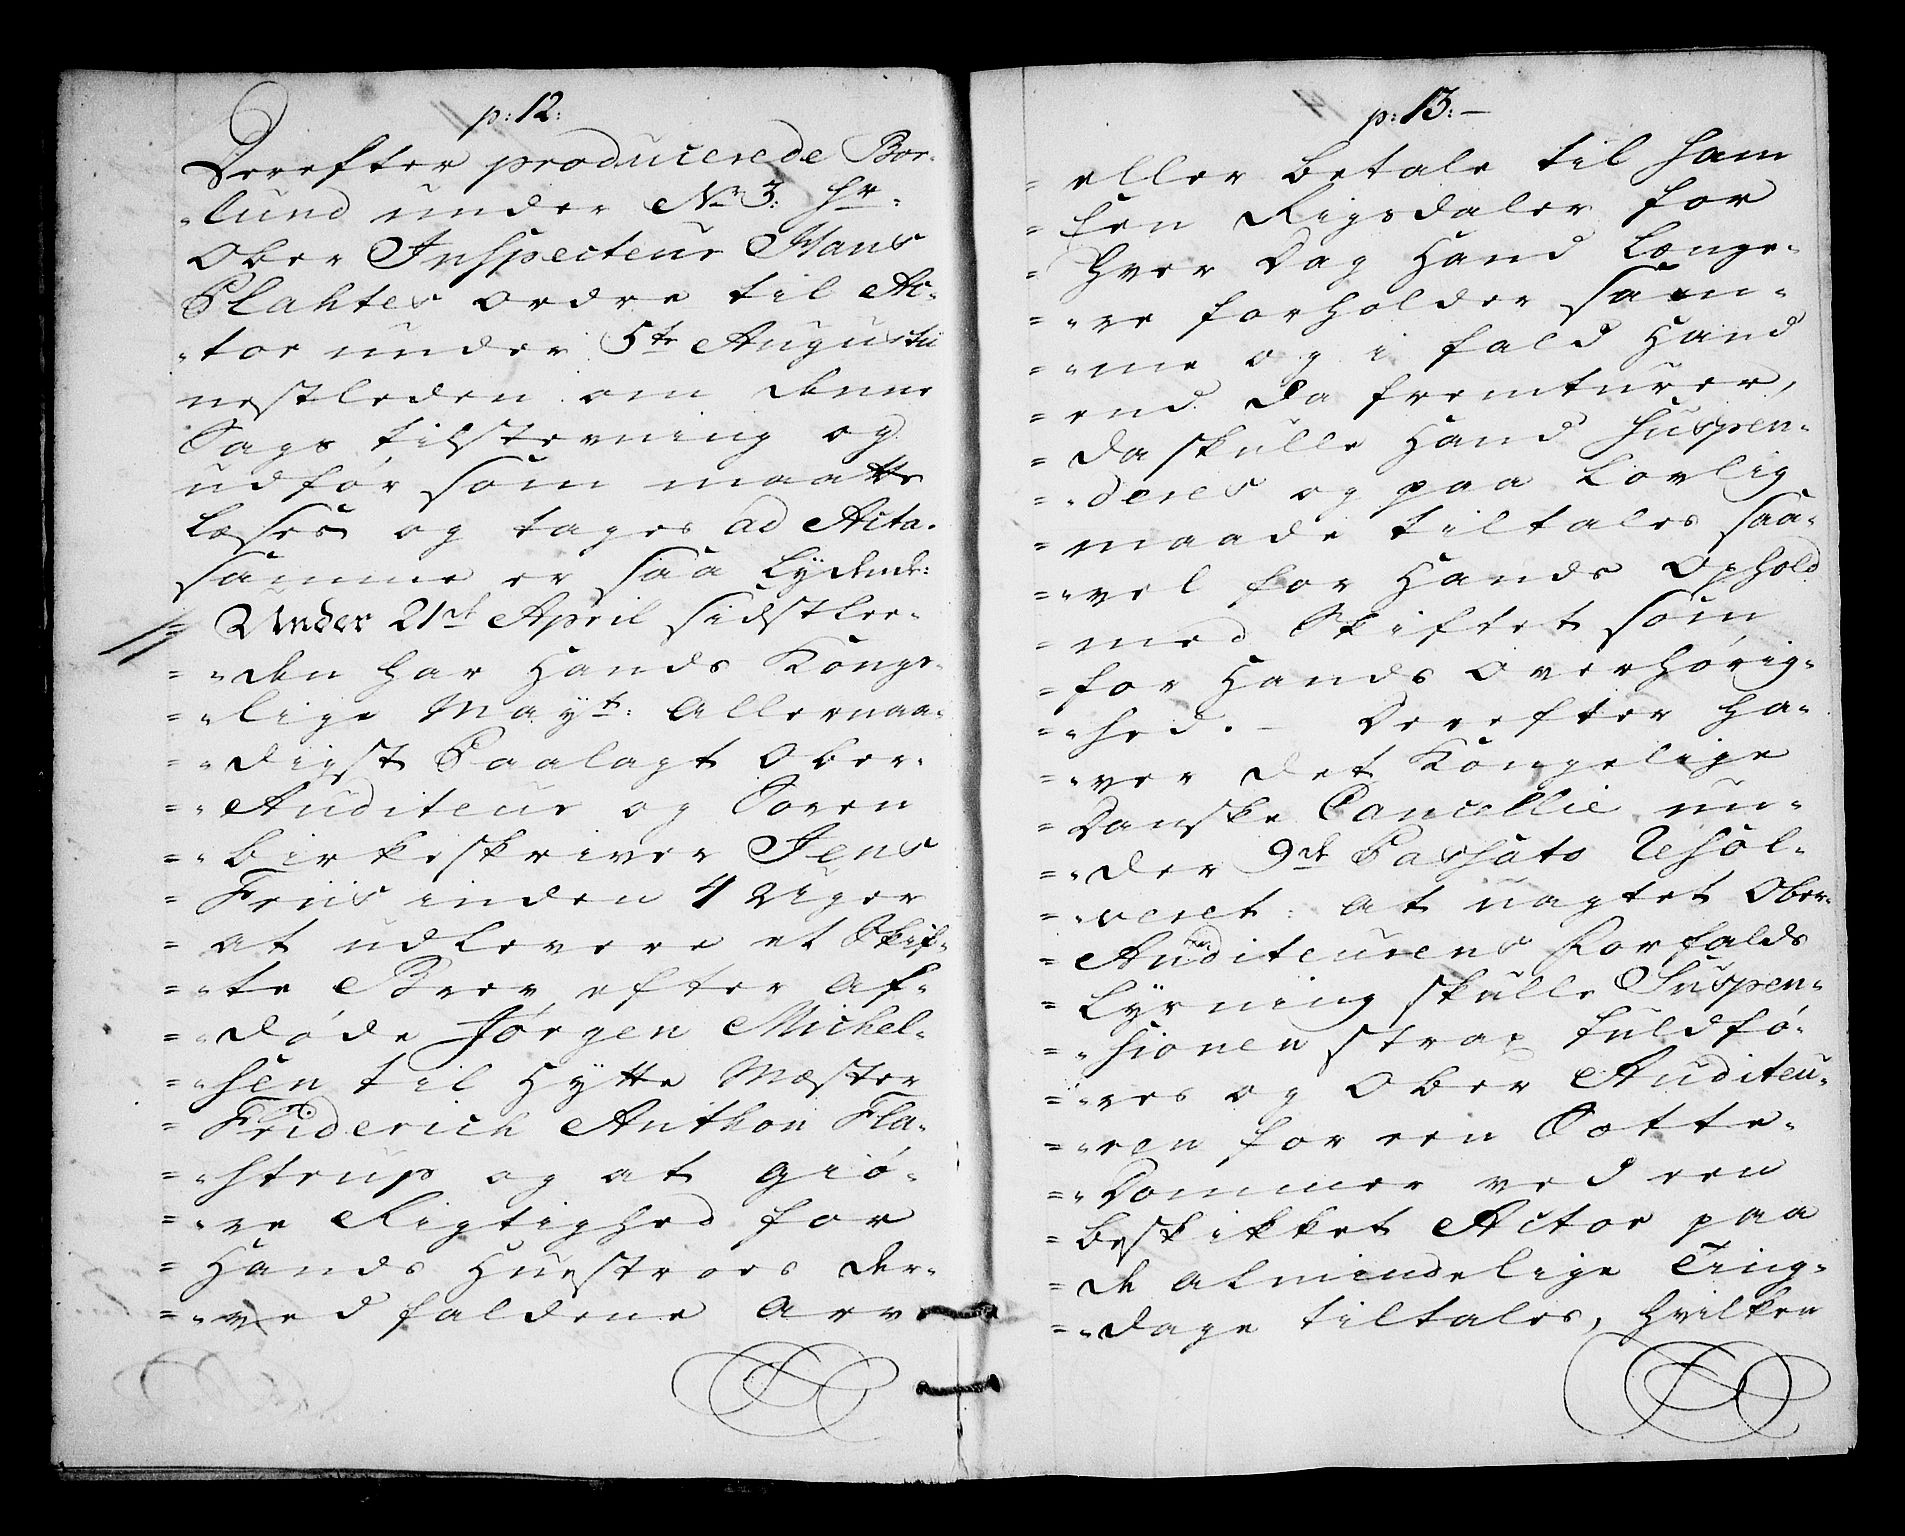 p: 12:
Derefter producerede Bor-
lund under No 3: Hr
Ober Inspecteur Hans
Plahtes ordre til Ac-
tor under 5te Augustii
nestleden om denne
Sags tilstevning og
udfør som maatte
Læses og tages ad Acta.
samme er saa Lydende:
Under 21de April sidstlee-
den har Hands Konge-
lige Mayt: Allernaa-
digst Paalagt Ober-
Auditeur og Soren
birkeskriver Jens
Friis inden 4 Uger
at udlevere et Skif-
te Brev efter Af-
døde Jørgen Michel-
sen til Hytte Mæster
Friderich Anthon Fla-
strup og at giø-
re Rigtighed for
Hands Huestroes der-
ved faldene Arv
p: 13:
eller betale til ham
Een Rigsdaler for
hver Dag Hand Længe-
re forholder sam-
me og i fald Hand
end da fremturer,
da skulle Hand Suspen-
deres og paa Lovlig
maade tiltales saa-
vel for Hands Ophold
med Skiftet som
for Hands Overhørig-
hed. - Derefter ha-
ver det Kongelige
Danske Cancellie un-
der 9de Passato Resol-
veret: at uagtet Ober-
Auditeurens Forfalds
Lysning skulle Suspen-
sionen strax fuldfø-
res og Ober Auditeu-
ren for een Sotte-
Dommer ved een
beskikket Actor paa
de almindelige Ting-
dage tiltales, hvilken